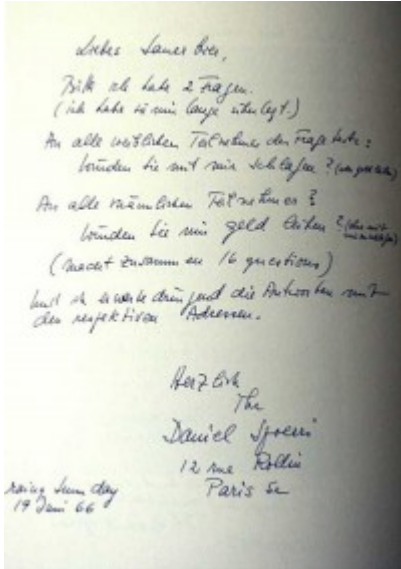 Liebes Lauer Eier,
Bitte ich habe 2 Fragen.
(ich habe es mir lange überlegt.)
An alle weiblichen Teilnehmer der Frage texte:
würden Sie mit mir schlafen?
An alle männlichen Teilnehmer?
würden Sie mir geld leihen?
(macht zusammen 16 questions)
Und ich erwarte dringend die Antworten mit
den respektiven Adressen.
Herzlich
Ihr
Daniel Spoerri
12 rue Rollin
Paris 5e
rainy Sunday
19 Juni 66